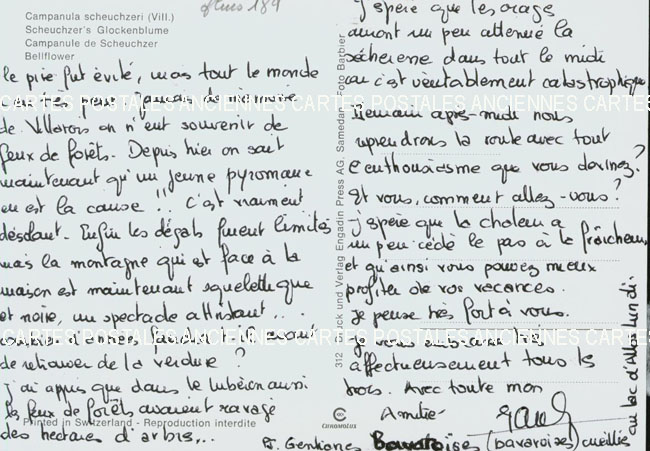 Campanula scheuchzeri (Vill.)
Scheuchzer's Glockenblume
Campanule de Scheuchzer
Bellflower
le pire fut évité, mais tout le monde
eut très peur, jamais de mémoire
de Villarois on n'eut souvenir de
feux de forêts. Depuis hier on sait
maintenant qu'un jeune pyromane
en est la cause !! C'est vraiment
désolant. Enfin les dégats furent limités
mais la montagne qui est face à la
maison est maintenant squelettique
et noire, un spectacle attristant...
combien d'années faudra-t-il avant
de retrouver de la verdure ?
j'ai appris que dans le lubéron aussi
les feux de forêts avaient ravagé
des hectares d'arbres...
Printed in Switzerland - Reproduction interdite
312 Druck und Verlag Engadin Press AG, Samedan Foto Barbier
j'espère que les orages
auront un peu atténué la
sécheresse dans tout le midi
car c'est véritablement catastrophique
Demain après-midi nous
reprendrons la route avec tout
l'enthousiasme que vous devinez ?
Et vous, comment allez-vous ?
j'espère que la chaleur a
un peu cédé le pas à la fraîcheur
et qu'ainsi vous pouvez mieux
profiter de vos vacances.
Je pense très fort à vous.
Je vous embrasse très
affectueusement tous les
trois. Avec toute mon
Amitié
CHROMOLUX
P.S. Gentianes Bavaroises (bavaroises) cueillies
au lac d'Allos lundi.
CARTES POSTALES ANCIENNES CARTES POSTALES ANCIENNES CARTES
CARTES POSTALES ANCIENNES CARTES POSTALES ANCIENNES CARTES